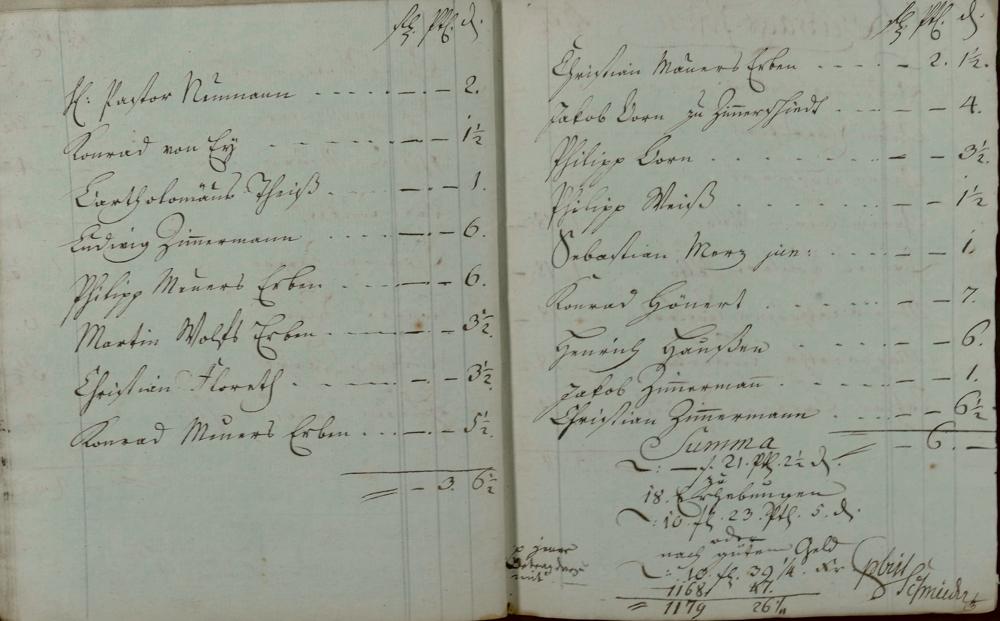 fl. Ptl. d.
H: Pastor Neumann — — 2.
Konrad von Ey — — 1½
Bartholomäus Theiß — — 1.
Ludwig Zimmermann — — 6.
Philipp Meuers Erben — — 6.
Martin Wolfs Erben — — 3½.
Christian Floreth — — 3½.
Konrad Meuers Erben — — 5½.
— 3. 6½
fl. Ptl. d.
Christian Mäuers Erben — 2. 1½.
Jakob Dorn zu — — 4.
Philipp Dorn — — 3½.
Philipp Weiß — — 1½
Sebastian Merz jun: — — 1.
Konrad Hönert — — 7.
Henrich Haußen — — 6.
Jakob Zimmermann — — 1.
Christian Zimmermann — — 6½
Summa — 6. —
: — f. 21. Ptl. 2½ d.
zu
18. Erhebungen
: 10. fl. 23. Ptl. 5. d.
oder
nach gutem Geld
: 10. fl. 39 ¼. Kr
1168 47.
1179 26¼